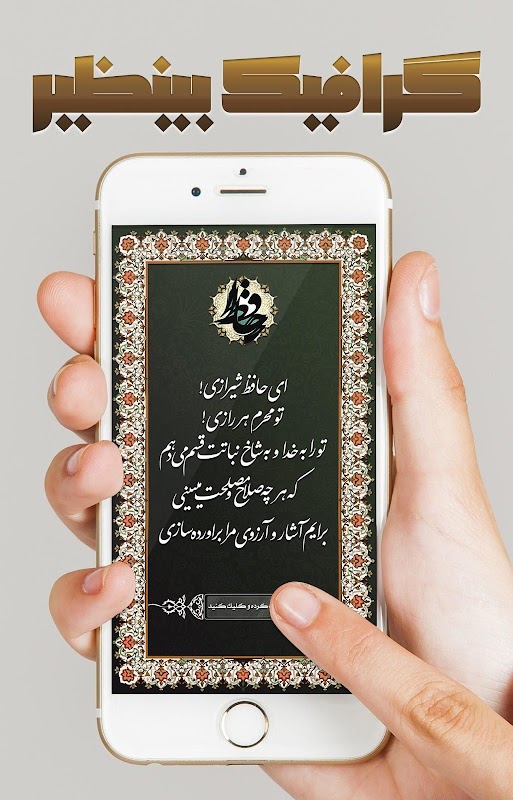 گرافیک بینظیر
حافظ
ای حافظ شیرازی!
تو محرم هر رازی!
تو را به خدا و به شاخ نباتت قسم می دهم
که هر چه صلاح و مصلحت میبینی
برایم آشکار و آرزوی مرا براورده سازی
کرده و کلیک کنید